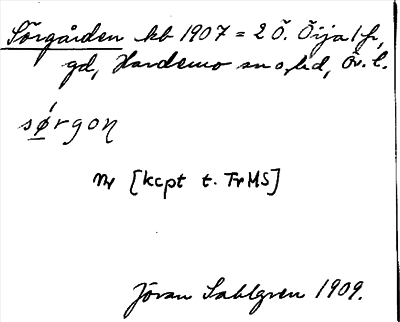 Sörgården kb 1907 = 2 Ö. Öja 1 fr,
gd, Hardemo sn o. hd, Ör. l.
sørgoɳ
Nr [kcpt t. TrMS]
Jöran Sahlgren 1909.